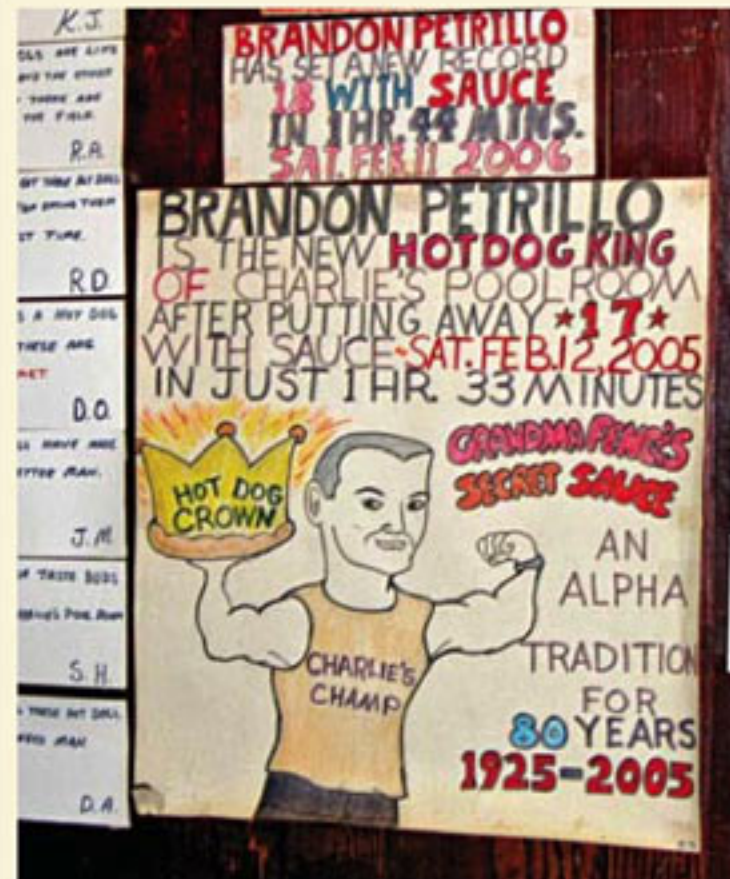 K.J.
R.A.
R.D
D.O.
J.M.
S.H.
D.A.
BRANDON PETRILLO
HAS SET A NEW RECORD
18 WITH SAUCE
IN 1 HR. 44 MINS.
SAT. FEB. 11 2006
BRANDON PETRILLO
IS THE NEW HOT DOG KING
OF CHARLIE'S POOLROOM
AFTER PUTTING AWAY *17*
WITH SAUCE-SAT. FEB. 12, 2005
IN JUST 1 HR. 33 MINUTES
HOT DOG
CROWN
CHARLIE'S
CHAMP
SECRET SAUCE
AN
ALPHA
TRADITION
FOR
80 YEARS
1925-2005